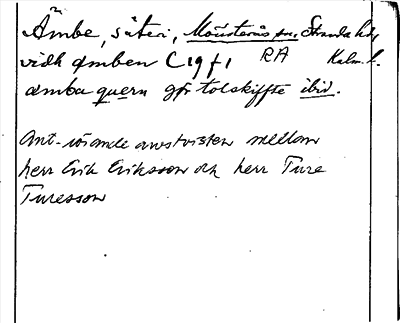 Ämbe, säteri, Mönsterås sn, Stranda hd,
vidh æmben C 19 f 1 RA Kalm. l.
æmba quern gør tolskiffte ibid.
Ant. rörande arvstvisten mellan
herr Erik Eriksson och herr Ture
Turesson